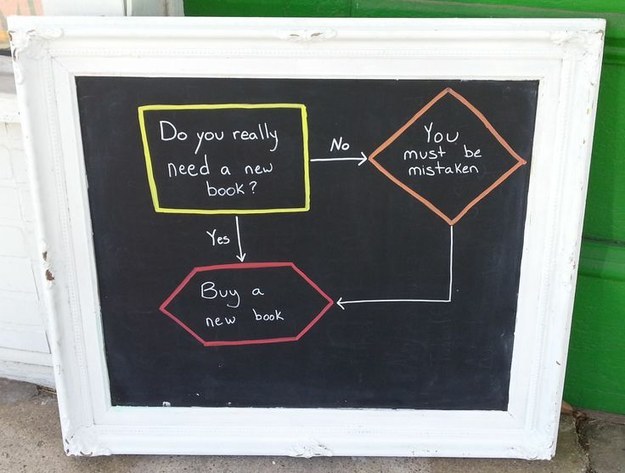 Do you really
need a new
book?
No
You
must be
mistaken
Yes
Buy a
new book